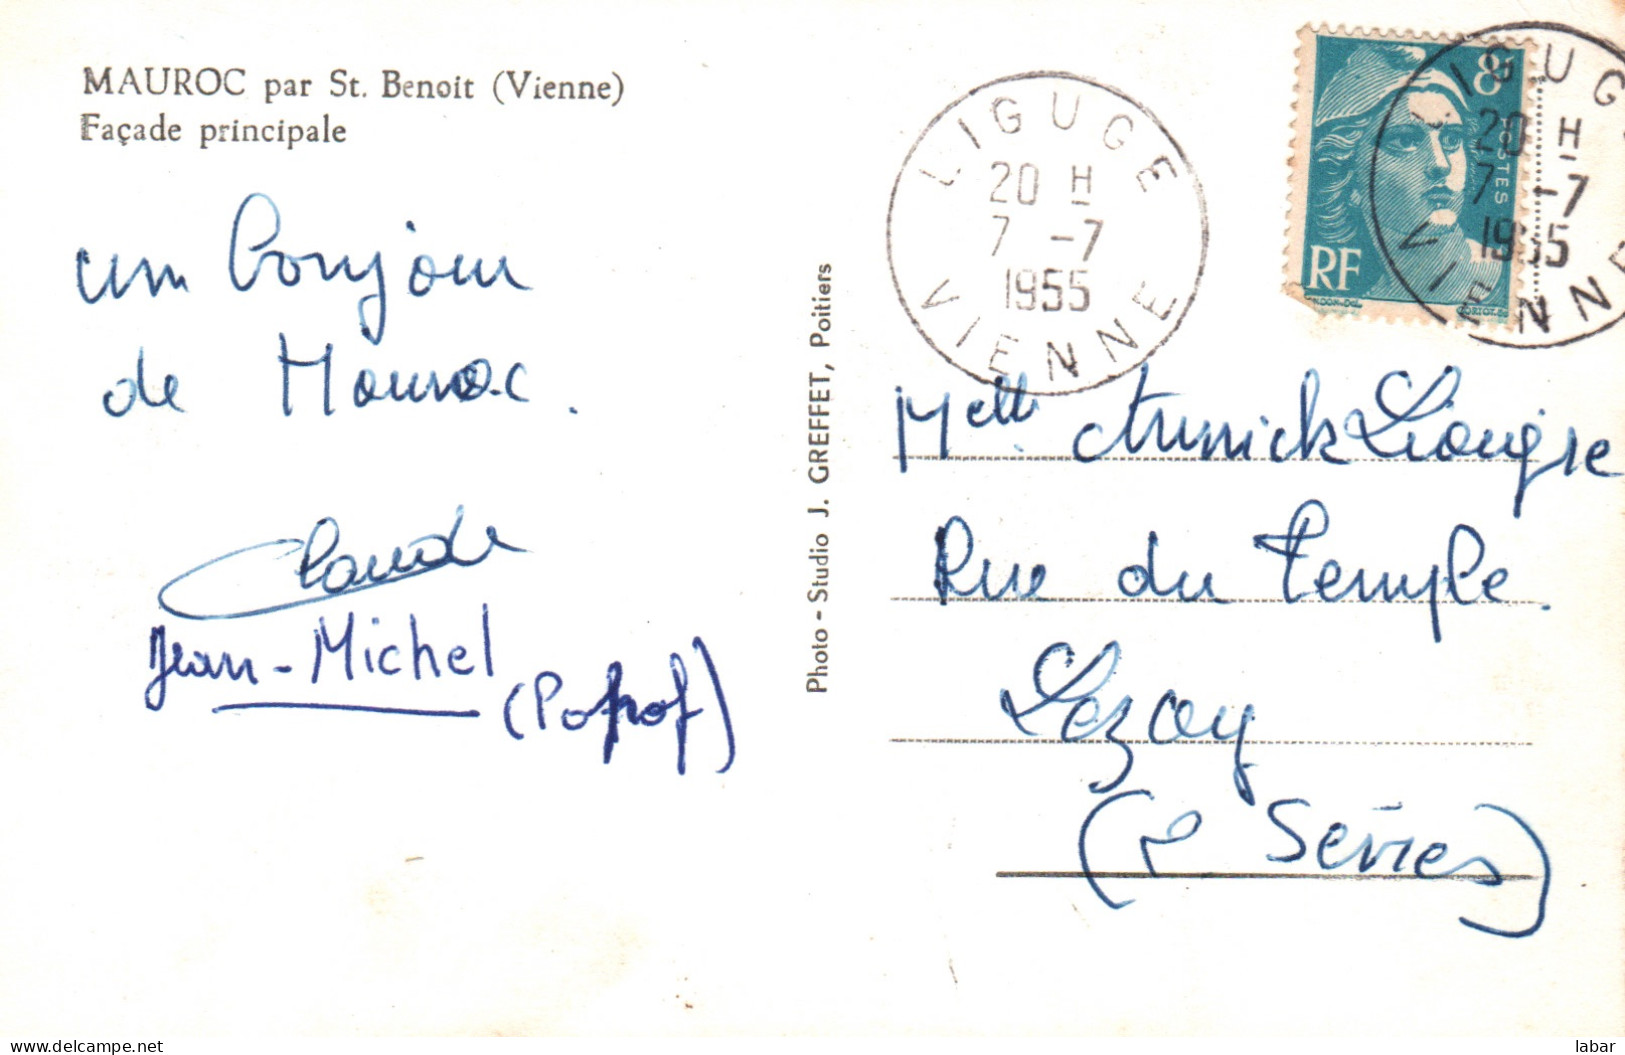 MAUROC par St. Benoit (Vienne)
Façade principale
un bonjour
de Mauroc.
Claude
Jean-Michel
(Pofpof)
Photo - Studio J. GREFFET, Poitiers
LIGUGE
20 H
7 -7
1955
VIENNE
8F
POSTES
RF
LIGUG
20 H
7 -7
1955
VIENNE
Melle Annick Liougre
Rue du Temple.
Lezay
(2 Sèvres)
delcampe.net
labar